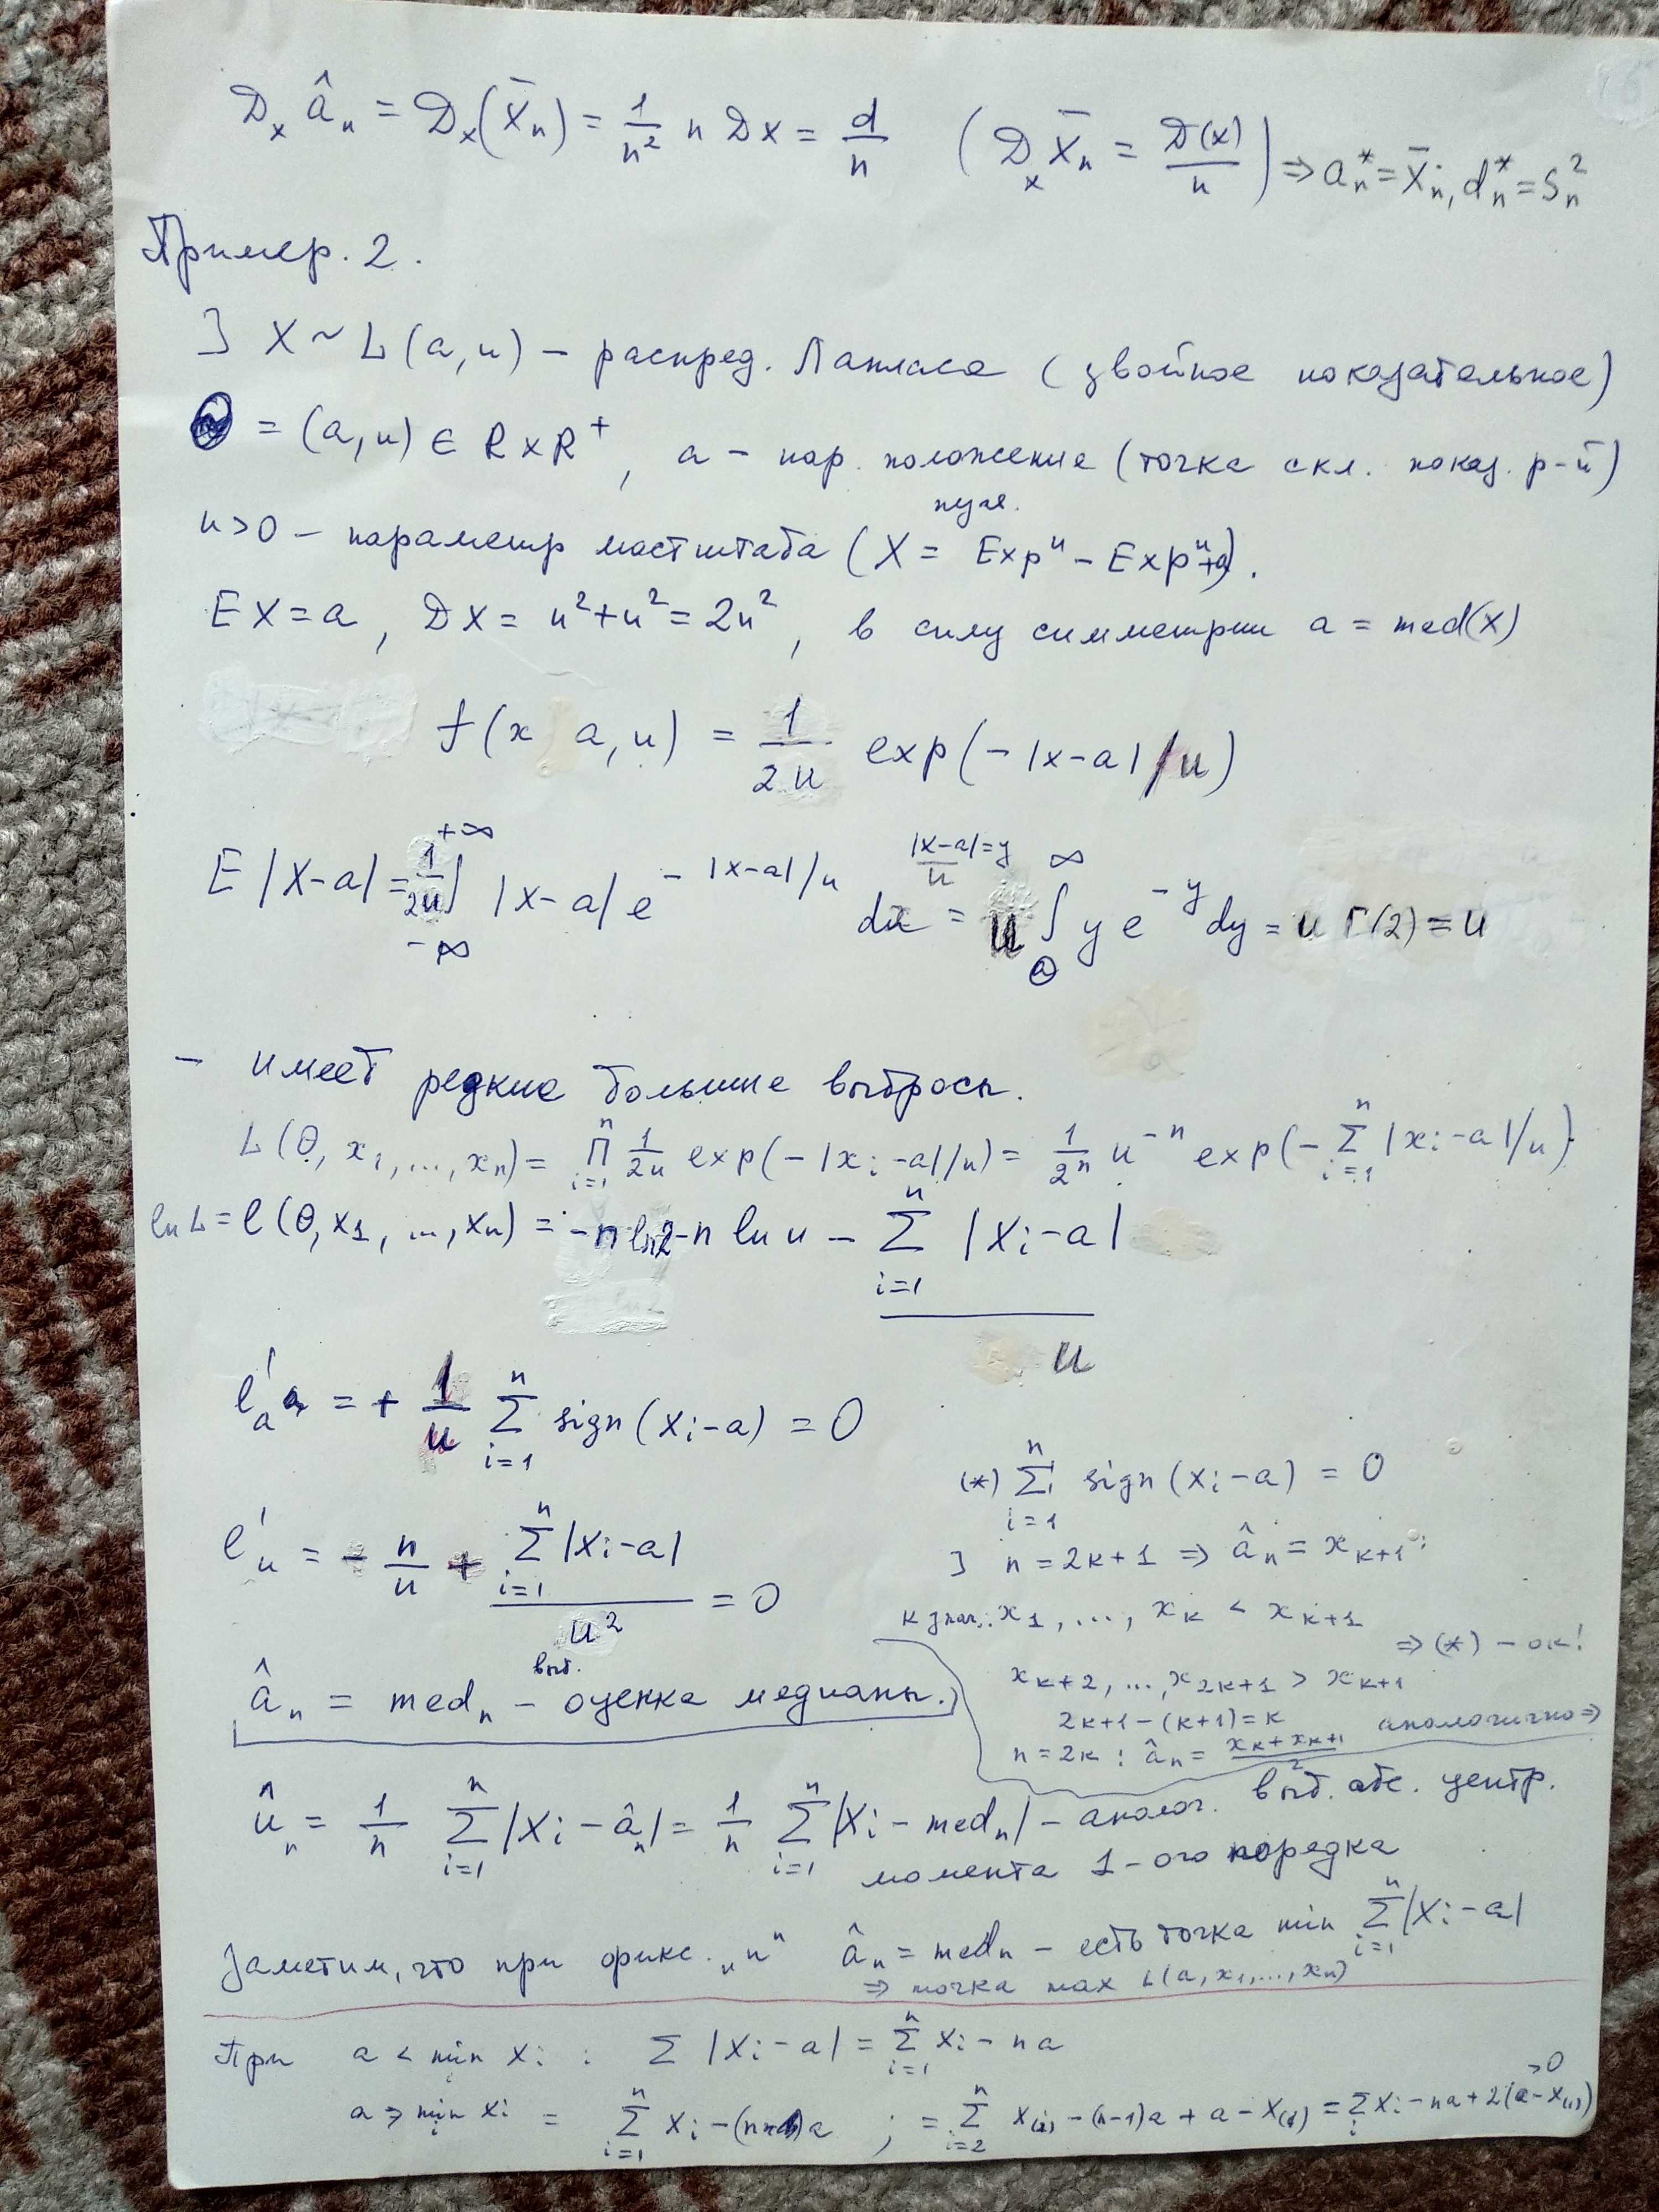 D_x â_n = D_x(X̄_n) = 1/n² n DX = d/n (D_x X̄_n = D(x)/n) ⇒ a_n* = X̄_n, d_n* = S_n²
Пример. 2.
] X ~ L(a,u) – распред. Лапласа (двойное показательное)
= (a,u) ∈ R×R⁺, a – пар. положение (точка скл. показ. р-й)
u>0 – параметр масштаба (X = Exp^u – Exp^u + a).
EX = a, DX = u²+u² = 2u², в силу симметрии a = med(X)
f(x, a, u) = 1/2u exp(–|x–a|/u)
E|X–a| = 1/2u ∫_{-∞}^{+∞} |x–a| e^{–|x–a|/u} dx = (|x–a|/u = y) u ∫_0^∞ y e^{–y} dy = u Γ(2) = u
– имеет редкие большие выбросы.
L(θ, x₁, ..., x_n) = ∏_{i=1}^n 1/2u exp(–|x_i–a|/u) = 1/2ⁿ u⁻ⁿ exp(–∑_{i=1}^n |x_i–a|/u)
ln L = l(θ, x₁, ..., x_n) = –n ln2 – n ln u – ∑_{i=1}^n |x_i–a| / u
l'_a = + 1/u ∑_{i=1}^n sign(x_i–a) = 0
l'_u = – n/u + ∑_{i=1}^n |x_i–a| / u² = 0
(*) ∑_{i=1}^n sign(x_i–a) = 0
] n = 2k+1 ⇒ â_n = x_{k+1}:
k знач.: x₁, ..., x_k < x_{k+1}
⇒ (*) – ок!
x_{k+2}, ..., x_{2k+1} > x_{k+1}
2k+1–(k+1)=k
n = 2k : â_n = (x_k + x_{k+1})/2 аналогично ⇒
â_n = med_n – выб. оценка медианы.
û_n = 1/n ∑_{i=1}^n |x_i – â_n| = 1/n ∑_{i=1}^n |x_i – med_n| – аналог. выб. абс. центр.
момента 1-ого порядка
Заметим, что при фикс. „u" â_n = med_n – есть точка min ∑_{i=1}^n |x_i–a|
⇒ точка max L(a, x₁, ..., x_n)
При a < min_i x_i : ∑ |x_i–a| = ∑_{i=1}^n x_i – na
a > min_i x_i = ∑_{i=1}^n x_i – a ; = ∑_{i=2}^n x_(i) – (n–1)a + a – x_(1) = ∑_i x_i – na + 2(a–x_(1)) >0